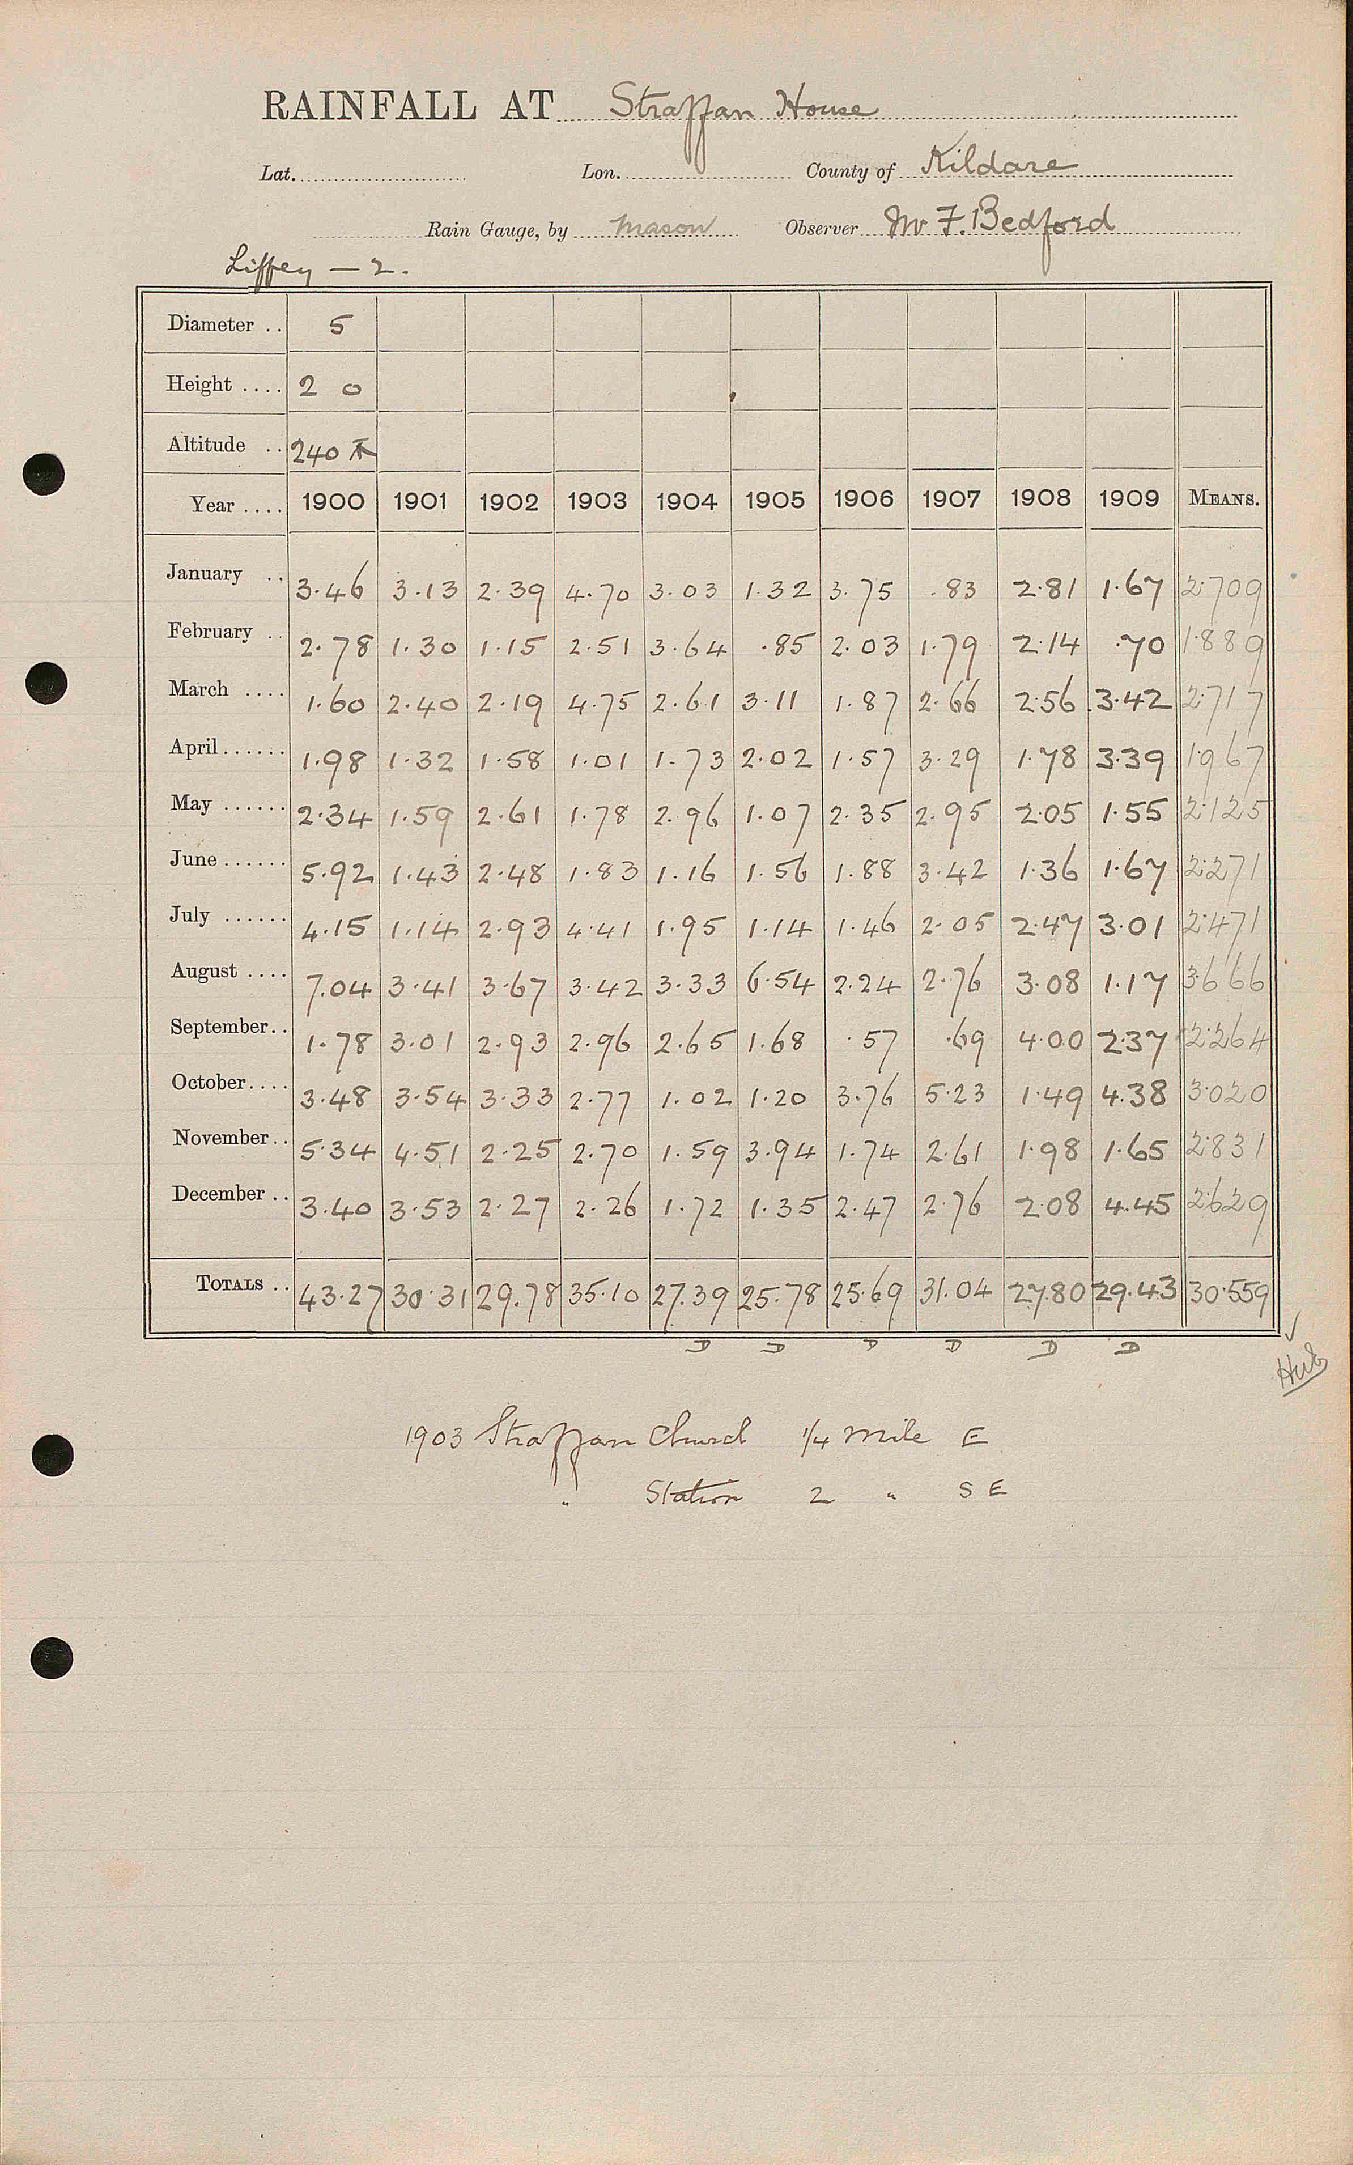 RAINFALL AT Straffan House
Lat. Lon. County of Kildare
Rain Gauge, by Mason Observer Mr F. Bedford
Liffey — 2.
Diameter .. 5
Height .... 2 0
Altitude .. 240
Year .... 1900 1901 1902 1903 1904 1905 1906 1907 1908 1909 MEANS.
January .. 3.46 3.13 2.39 4.70 3.03 1.32 3.75 .83 2.81 1.67 2.709
February .. 2.78 1.30 1.15 2.51 3.64 .85 2.03 1.79 2.14 .70 1.889
March .... 1.60 2.40 2.19 4.75 2.61 3.11 1.87 2.66 2.56 3.42 2.717
April ...... 1.98 1.32 1.58 1.01 1.73 2.02 1.57 3.29 1.78 3.39 1.967
May ...... 2.34 1.59 2.61 1.78 2.96 1.07 2.35 2.95 2.05 1.55 2.125
June ...... 5.92 1.43 2.48 1.83 1.16 1.56 1.88 3.42 1.36 1.67 2.271
July ...... 4.15 1.14 2.93 4.41 1.95 1.14 1.46 2.05 2.47 3.01 2.471
August .... 7.04 3.41 3.67 3.42 3.33 6.54 2.24 2.76 3.08 1.17 3.666
September .. 1.78 3.01 2.93 2.96 2.65 1.68 .57 .69 4.00 2.37 2.264
October .... 3.48 3.54 3.33 2.77 1.02 1.20 3.76 5.23 1.49 4.38 3.020
November .. 5.34 4.51 2.25 2.70 1.59 3.94 1.74 2.61 1.98 1.65 2.831
December .. 3.40 3.53 2.27 2.26 1.72 1.35 2.47 2.76 2.08 4.45 2.629
TOTALS .. 43.27 30.31 29.78 35.10 27.39 25.78 25.69 31.04 27.80 29.43 30.559
D D D D D D
1903 Straffan Church 1/4 Mile E
" Station 2 " S E